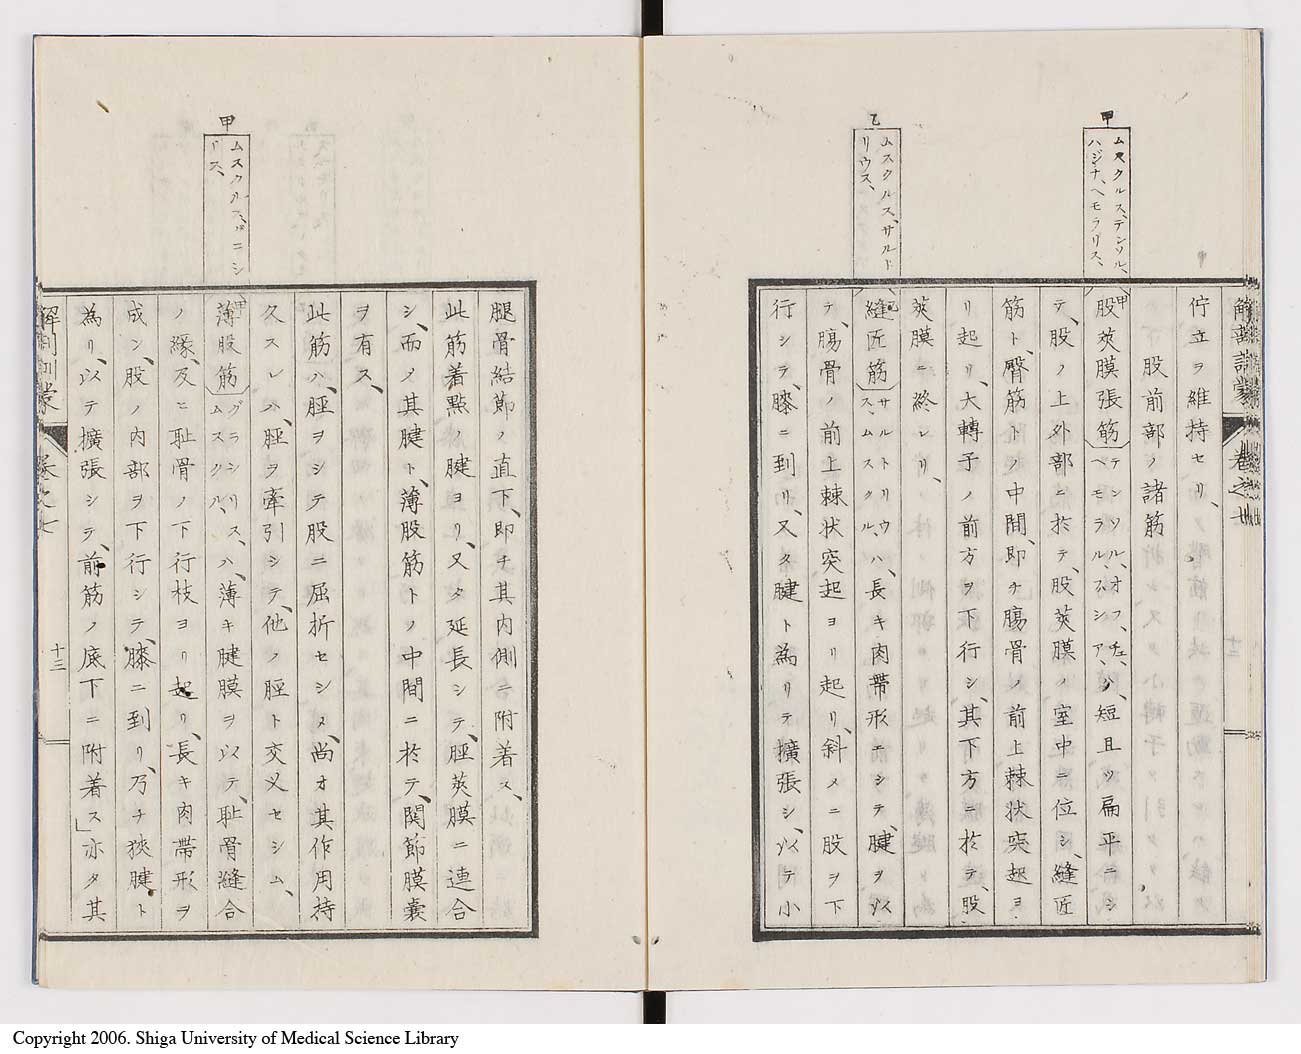 甲
ムスクルス、テンソル、
ハジナ、ヘモラリス、
乙
ムスクルス、サルト
リウス、
解剖訓蒙 卷之七
佇立ヲ維持セリ、
股前部ノ諸筋
股莢膜張筋 テンソル、オフ、チェ、
ヘモラル、スシア、ハ、短且ツ扁平ニシ
テ、股ノ上外部ニ於テ、股莢膜ノ室中ニ位シ、縫匠
筋ト、臀筋トノ中間、即チ膓骨ノ前上棘状突起ヨ
リ起リ、大轉子ノ前方ヲ下行シ、其下方ニ於テ、股
莢膜ニ終レリ、
縫匠筋 サルトリウ
ス、ムスクル、ハ、長キ肉帶形ニシテ、腱ヲ以
テ、膓骨ノ前上棘状突起ヨリ起リ、斜メニ股ヲ下
行シテ、膝ニ到リ、又タ腱ト為リテ擴張シ、以テ小
甲
ムスクルス、
リス、
腿骨結節ノ直下、即チ其内側ニ附着ス、
此筋着點ノ腱ヨリ、又タ延長シテ、脛莢膜ニ連合
シ、而ノ其腱ト、薄股筋トノ中間ニ於テ、関節膜嚢
ヲ有ス、
此筋ハ、脛ヲシテ股ニ屈折セシメ、尚オ其作用持
久スレハ、脛ヲ牽引シテ、他ノ脛ト交乂セシム、
薄股筋 グラシリス、
ムスクル、ハ、薄キ腱膜ヲ以テ、耻骨縫合
ノ縁、及ヒ耻骨ノ下行枝ヨリ起リ、長キ肉帶形ヲ
成シ、股ノ内部ヲ下行シテ、膝ニ到リ、乃チ狹腱ト
為リ、以テ擴張シテ、前筋ノ底下ニ附着ス」亦タ其
解剖訓蒙 卷之七 十三
Copyright 2006. Shiga University of Medical Science Library